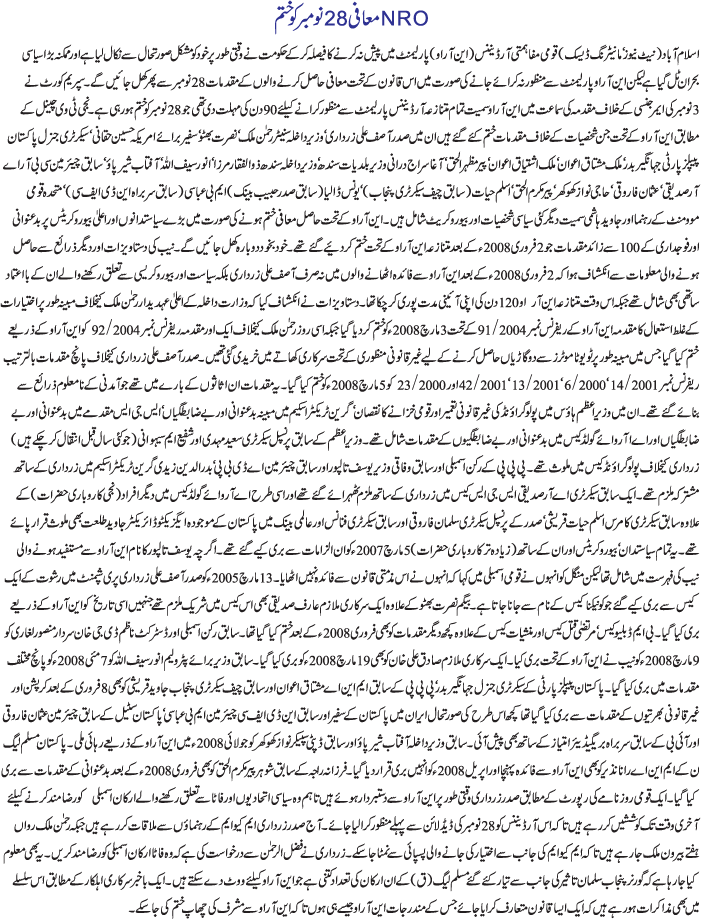 NRO معافی 28 نومبر کو ختم
اسلام آباد (نیٹ نیوز' مانیٹرنگ ڈیسک) قومی مفاہمتی آرڈیننس (این آر او) پارلیمنٹ میں پیش نہ کرنے کا فیصلہ کر کے حکومت نے وقتی طور پر خود کو مشکل صورتحال سے نکال لیا ہے اور ممکنہ بڑا سیاسی
بحران ٹل گیا ہے لیکن این آر او پارلیمنٹ سے منظور نہ کرائے جانے کی صورت میں اس قانون کے تحت معافی حاصل کرنے والوں کے مقدمات 28 نومبر سے پھر کھل جائیں گے۔ سپریم کورٹ نے
3 نومبر کی ایمرجنسی کے خلاف مقدمہ کی سماعت میں این آر او سمیت تمام متنازعہ آرڈیننس پارلیمنٹ سے منظور کرانے کیلئے 90 دن کی مہلت دی تھی جو 28 نومبر کو ختم ہو رہی ہے۔ نجی ٹی وی چینل کے
مطابق این آر او کے تحت جن شخصیات کے خلاف مقدمات ختم کئے گئے ہیں ان میں صدر آصف علی زرداری' وزیر داخلہ سنیٹر رحمٰن ملک' نصرت بھٹو' سفیر برائے امریکہ حسین حقانی' سیکرٹری جنرل پاکستان
پیپلز پارٹی جہانگیر بدر' ملک مشتاق اعوان' ملک اشتیاق اعوان' پیر مظہر الحق' آغا سراج درانی وزیر بلدیات سندھ' وزیر داخلہ سندھ ذوالفقار مرزا' انور سیف اللہ' آفتاب شیر پاؤ' سابق چیئرمین سی بی آر اے
آر صدیقی' عثمان فاروقی' حاجی نواز کھوکھر' پیر مکرم الحق' اسلم حیات (سابق چیف سیکرٹری پنجاب)' یونس ڈالیا (سابق صدر حبیب بینک) ایم بی عباسی (سابق سربراہ این ڈی ایف سی)' متحدہ قومی
موومنٹ کے رہنما اور جاوید ہاشمی سمیت دیگر کئی سیاسی شخصیات اور بیورو کریٹ شامل ہیں۔ این آر او کے تحت حاصل معافی ختم ہونے کی صورت میں بڑے سیاستدانوں اور اعلیٰ بیورو کریٹس پر بدعنوانی
اور فوجداری کے 100 سے زائد مقدمات جو 2 فروری 2008ء کے بعد متنازعہ این آر او کے تحت ختم کر دیئے گئے تھے۔ خود بخود دوبارہ کھل جائیں گے۔ نیب کی دستاویزات اور دیگر ذرائع سے حاصل
ہونے والی معلومات سے انکشاف ہوا کہ 2 فروری 2008ء کے بعد این آر او سے فائدہ اٹھانے والوں میں نہ صرف آصف علی زرداری بلکہ سیاست اور بیورو کریسی سے تعلق رکھنے والے ان کے بااعتماد
ساتھی بھی شامل تھے جبکہ اس وقت متنازعہ این آر او 120 دن کی اپنی آئینی مدت پوری کر چکا تھا۔ دستاویزات نے انکشاف کیا کہ وزارت داخلہ کے اعلیٰ عہدیدار رحمٰن ملک کیخلاف مبینہ طور پر اختیارات
کے غلط استعمال کا مقدمہ این آر او کے ریفرنس نمبر 91/2004 کے تحت 3 مارچ 2008ء کو ختم کر دیا گیا جبکہ اسی روز رحمٰن ملک کیخلاف ایک اور مقدمہ ریفرنس نمبر 92/2004 کو این آر او کے ذریعے
ختم کیا گیا جس میں مبینہ طور پر ٹویوٹا موٹرز سے دو گاڑیاں حاصل کرنے کے لیے غیر قانونی منظوری کے تحت سرکاری کھاتے میں خریدی گئی تھیں۔ صدر آصف علی زرداری کیخلاف پانچ مقدمات بالترتیب
ریفرنس نمبر 14/2001' 6/2000' 13/2001' 42/2001 اور 23/2000 کو 5 مارچ 2008ء کو ختم کیا گیا۔ یہ مقدمات ان اثاثوں کے بارے میں تھے جو آمدنی کے نامعلوم ذرائع سے
بنائے گئے تھے۔ ان میں وزیراعظم ہاؤس میں پولو گراؤنڈ کی غیر قانونی تعمیر اور قومی خزانے کا نقصان' گرین ٹریکٹر اسکیم میں مبینہ بدعنوانی اور بے ضابطگیاں' ایس جی ایس مقدمے میں بدعنوانی اور بے
ضابطگیاں اور اے آر وائے گولڈ کیس میں بدعنوانی اور بے ضابطگیوں کے مقدمات شامل تھے۔ وزیراعظم کے سابق پرنسپل سیکرٹری سعید مہدی اور شفیع ایم سیہوانی (جو کئی سال قبل انتقال کر چکے ہیں)
زرداری کیخلاف پولو گراؤنڈ کیس میں ملوث تھے۔ پی پی پی کے رکن اسمبلی اور سابق وفاقی وزیر یوسف تالپور اور سابق چیئرمین اے ڈی بی پی' بدر الدین زیدی گرین ٹریکٹر اسکیم میں زرداری کے ساتھ
مشترکہ ملزم تھے۔ ایک سابق سیکرٹری اے آر صدیقی ایس جی ایس کیس میں زرداری کے ساتھ ملزم ٹھہرائے گئے تھے اور اسی طرح اے آر وائے گولڈ کیس میں دیگر افراد (نجی کاروباری حضرات) کے
علاوہ سابق سیکرٹری کامرس اسلم حیات قریشی' صدر کے پرنسپل سیکرٹری سلمان فاروقی اور سابق سیکرٹری فنانس اور عالمی بینک میں پاکستان کے موجودہ ایگزیکٹو ڈائریکٹر جاوید طلعت بھی ملوث قرار پائے
تھے۔ یہ تمام سیاستدان' بیورو کریٹس اور ان کے ساتھ (زیادہ تر کاروباری حضرات) 5 مارچ 2007ء کو ان الزامات سے بری کیے گئے تھے۔ اگرچہ یوسف تالپور کا نام این آر او سے مستفید ہونے والی
نیب کی فہرست میں شامل تھا لیکن منگل کو انہوں نے قومی اسمبلی میں کہا کہ انہوں نے اس مذمتی قانون سے فائدہ نہیں اٹھایا۔ 13 مارچ 2005ء کو صدر آصف علی زرداری پری شپمنٹ میں رشوت کے ایک
کیس سے بری کیے گئے جو کوٹیکنا کیس کے نام سے جانا جاتا ہے۔ بیگم نصرت بھٹو کے علاوہ ایک سرکاری ملازم عارف صدیقی بھی اس کیس میں شریک ملزم تھے جنہیں اسی تاریخ کو این آر او کے ذریعے
بری کیا گیا۔ بی ایم ڈبلیو کیس' مرتضیٰ قتل کیس اور منشیات کیس کے علاوہ کچھ دیگر مقدمات کو بھی فروری 2008ء کے بعد ختم کیا گیا تھا۔ سابق رکن اسمبلی اور ڈسٹرکٹ ناظم ڈی جی خان سردار منصور لغاری کو
9 مارچ 2008ء کو نیب نے این آر او کے تحت بری کیا۔ ایک سرکاری ملازم صادق علی خان کو بھی 19 مارچ 2008ء کو بری کیا گیا۔ سابق وزیر برائے پٹرولیم انور سیف اللہ کو 7 مئی 2008ء کو پانچ مختلف
مقدمات میں بری کیا گیا۔ پاکستان پیپلز پارٹی کے سیکرٹری جنرل جہانگیر بدر' پی پی پی کے سابق ایم این اے مشتاق اعوان اور سابق چیف سیکرٹری پنجاب جاوید قریشی کو بھی 8 فروری کے بعد کرپشن اور
غیر قانونی بھرتیوں کے مقدمات سے بری کیا گیا تھا کچھ اس طرح کی صورتحال ایران میں پاکستان کے سفیر اور سابق این ڈی ایف سی چیئرمین ایم بی عباسی' پاکستان سٹیل کے سابق چیئرمین عثمان فاروقی
اور آئی بی کے سابق سربراہ بریگیڈیئر امتیاز کے ساتھ بھی پیش آئی۔ سابق وزیر داخلہ آفتاب شیر پاؤ اور سابق ڈپٹی سپیکر نواز کھوکھر کو جولائی 2008ء میں این آر او کے ذریعے رہائی ملی۔ پاکستان مسلم لیگ
ن کے ایم این اے رانا نذیر کو بھی این آر او سے فائدہ پہنچا اور اپریل 2008ء کو انہیں بری قرار دیا گیا۔ فرزانہ راجہ کے سابق شوہر پیر مکرم الحق کو بھی فروری 2008ء کے بعد بدعنوانی کے مقدمات سے بری
کیا گیا۔ ایک قومی روزنامے کی رپورٹ کے مطابق صدر زرداری وقتی طور پر این آر او سے دستبردار ہوئے ہیں تاہم وہ سیاسی اتحادیوں اور فاٹا سے تعلق رکھنے والے ارکان اسمبلی کو رضامند کرنے کیلئے
آخری وقت تک کوششیں کر رہے ہیں تا کہ اس آرڈیننس کو 28 نومبر کی ڈیڈ لائن سے پہلے منظور کرا لیا جائے۔ آج صدر زرداری ایم کیو ایم کے رہنماؤں سے ملاقات کر رہے ہیں جبکہ رحمٰن ملک رواں
ہفتے بیرون ملک جا رہے ہیں تا کہ ایم کیو ایم کی جانب سے اختیار کی جانے والی پسپائی سے نمٹا جا سکے۔ زرداری نے فضل الرحمٰن سے درخواست کی ہے کہ وہ فاٹا ارکان اسمبلی کو رضامند کریں۔ یہ بھی معلوم
کیا جا رہا ہے کہ گورنر پنجاب سلمان تاثیر کی جانب سے تیار کئے گئے مسلم لیگ (ق) کے ان ارکان کی تعداد کتنی ہے جو این آر او کیلئے ووٹ دے سکتے ہیں۔ ایک باخبر سرکاری اہلکار کے مطابق اس سلسلے
میں بھی مذاکرات ہو رہے ہیں کہ ایک ایسا قانون متعارف کرایا جائے جس کے مندرجات این آر او جیسے ہی ہوں تا کہ این آر او سے مشرف کی چھاپ ختم کی جا سکے۔